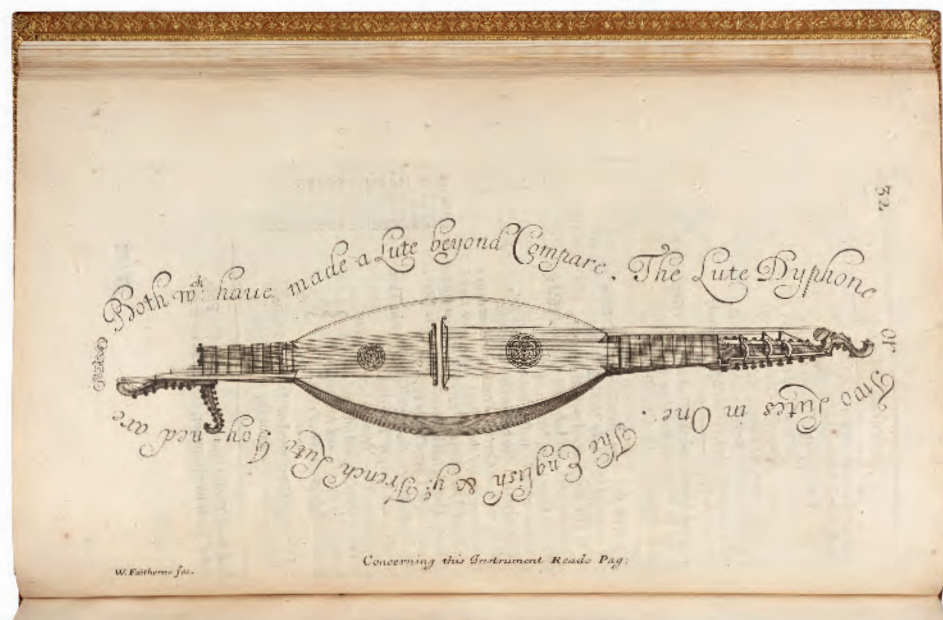 32.
The Lute Dyphone
or
Two Lutes in One. The English & yᵉ French Lute Joy-ned are
Both wᶜʰ have made a Lute beyond Compare.
W. Faithorne fec.
Concerning this Instrument Reade Pag: